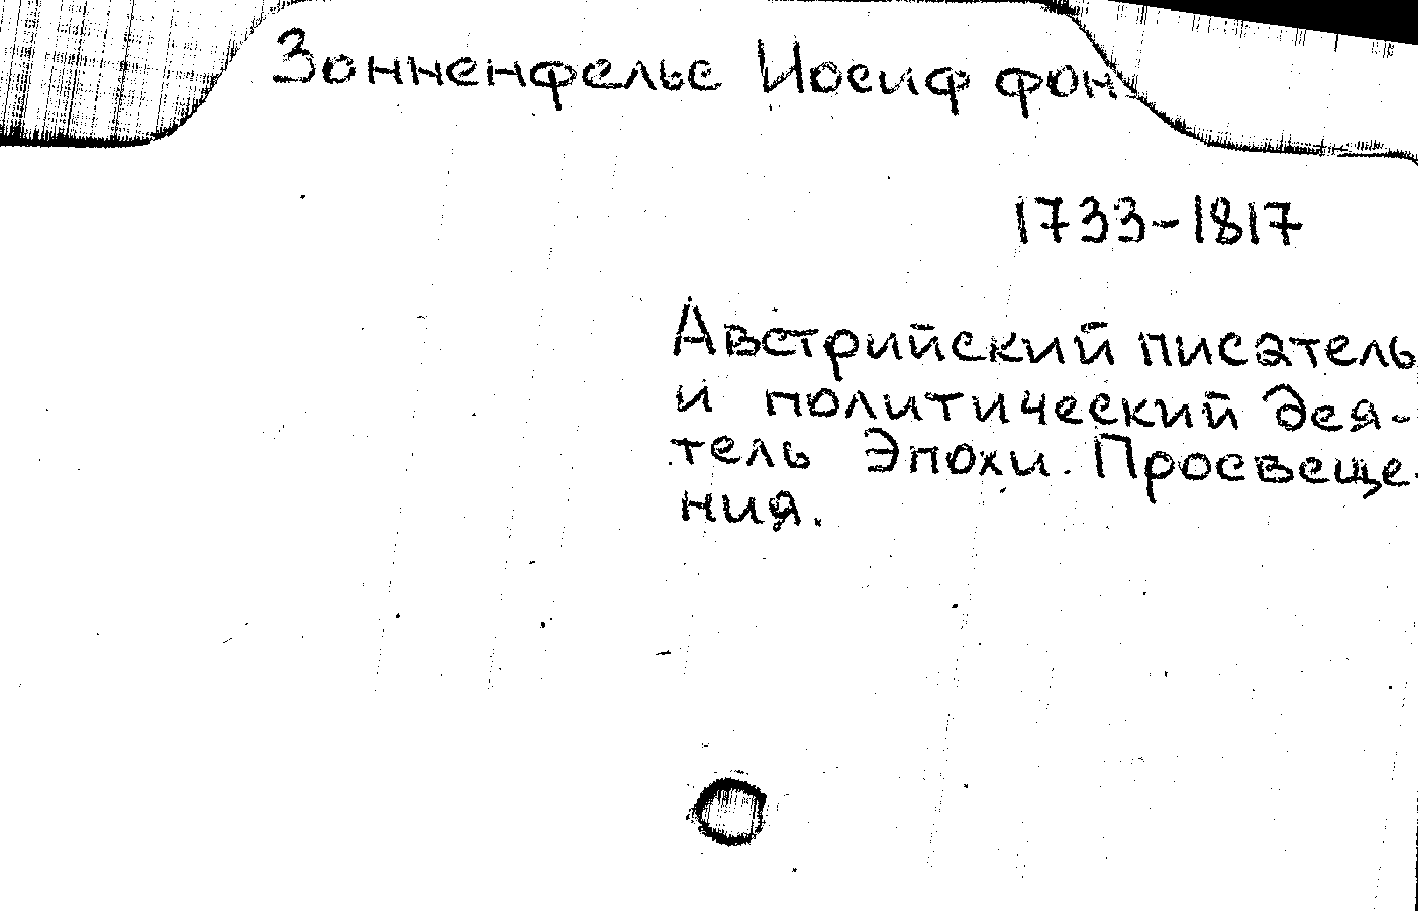 Зонненфельс Иосиф фон
1733-1817
Австрийский писатель
и политический дея-
тель Эпохи Просвеще-
ния.